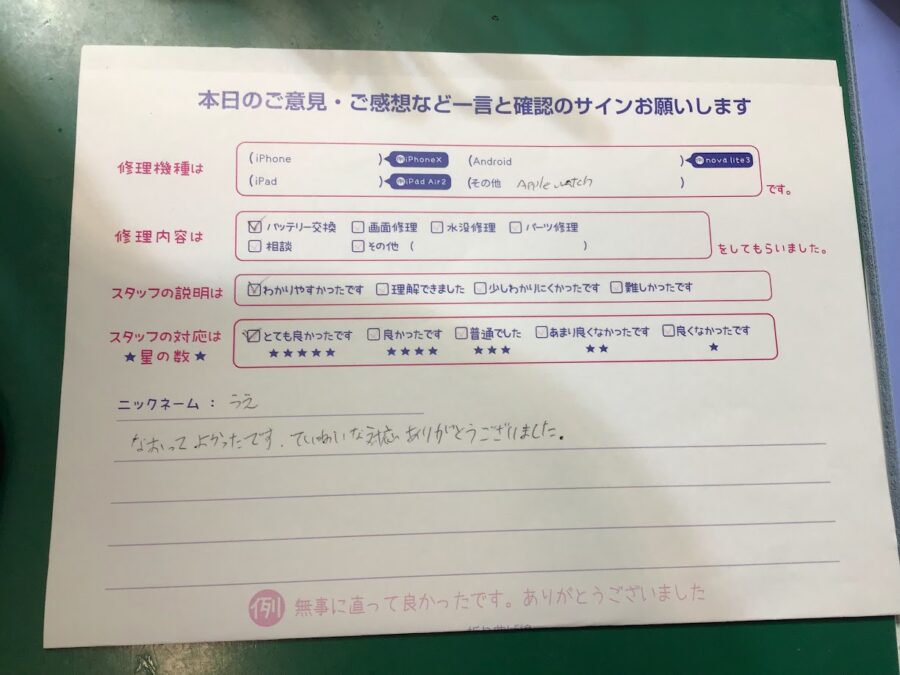 本日のご意見・ご感想など一言と確認のサインお願いします
修理機種は
(iPhone ) 例iPhoneX (Android ) 例nova lite3
(iPad ) 例iPad Air2 (その他 Apple watch ) です。
修理内容は
バッテリー交換 画面修理 水没修理 パーツ修理
相談 その他 ( ) をしてもらいました。
スタッフの説明は
わかりやすかったです 理解できました 少しわかりにくかったです 難しかったです
スタッフの対応は
★星の数★
とても良かったです 良かったです 普通でした あまり良くなかったです 良くなかったです
★★★★★ ★★★★ ★★★ ★★ ★
ニックネーム : うえ
なおってよかったです。ていねいな対応ありがとうございました。
例 無事に直って良かったです。ありがとうございました